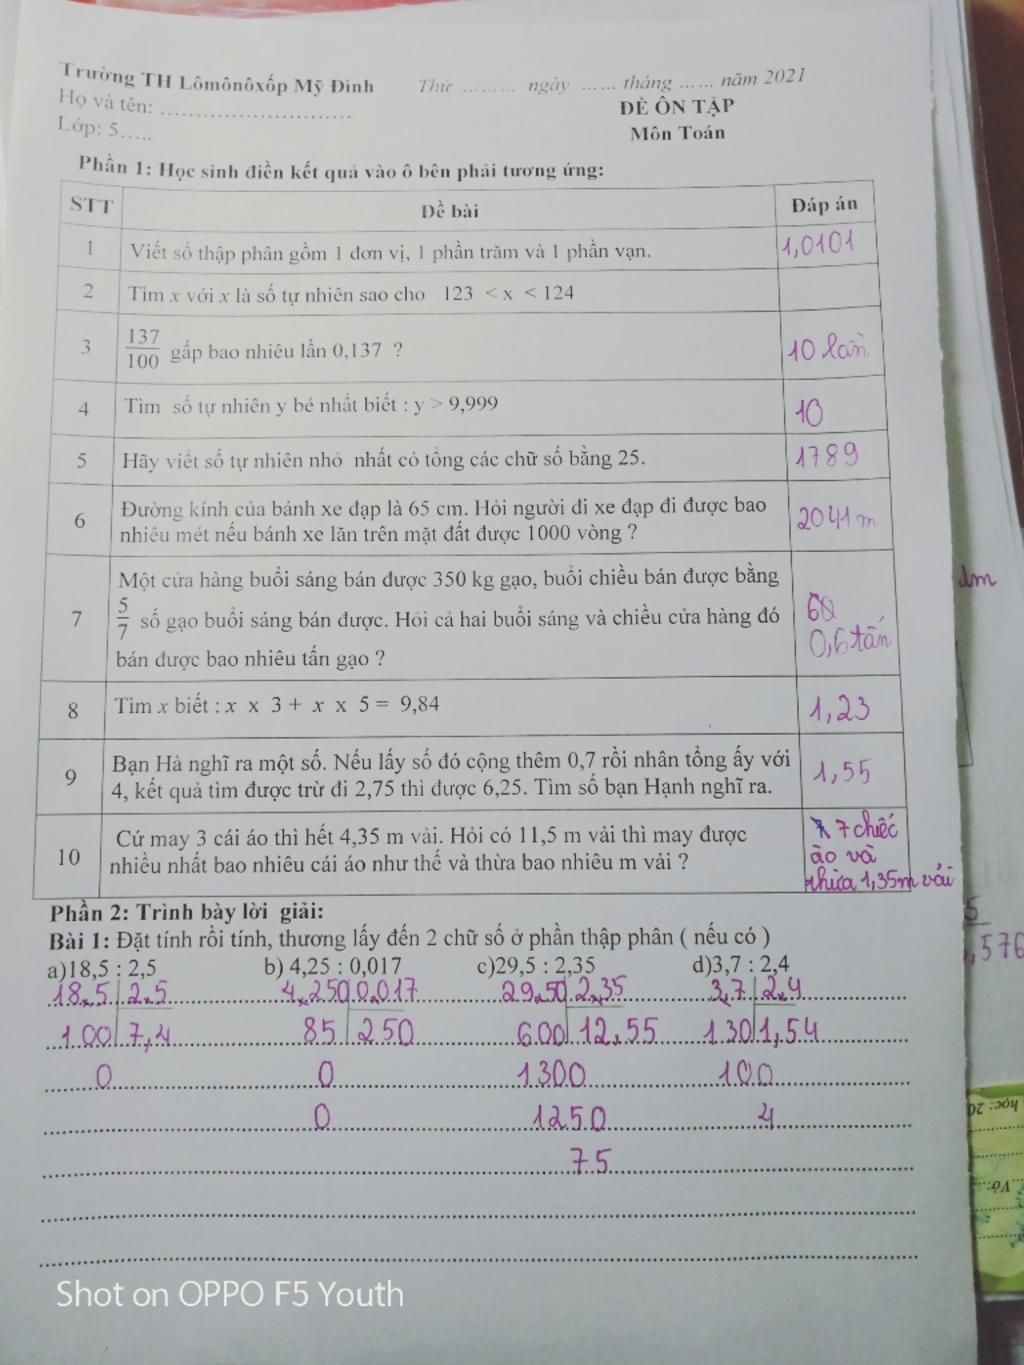 Trường TH Lômônôxốp Mỹ Đình
Thứ ......... ngày ...... tháng ...... năm 2021
Họ và tên: ............................
ĐỀ ÔN TẬP
Lớp: 5.....
Môn Toán
Phần 1: Học sinh điền kết quả vào ô bên phải tương ứng:
STT Đề bài Đáp án
1 Viết số thập phân gồm 1 đơn vị, 1 phần trăm và 1 phần vạn. 1,0101
2 Tìm x với x là số tự nhiên sao cho 123 < x < 124
3 137/100 gấp bao nhiêu lần 0,137 ? 10 lần
4 Tìm số tự nhiên y bé nhất biết : y > 9,999 10
5 Hãy viết số tự nhiên nhỏ nhất có tổng các chữ số bằng 25. 1789
6 Đường kính của bánh xe đạp là 65 cm. Hỏi người đi xe đạp đi được bao
nhiêu mét nếu bánh xe lăn trên mặt đất được 1000 vòng ? 2041 m
7 Một cửa hàng buổi sáng bán được 350 kg gạo, buổi chiều bán được bằng
5/7 số gạo buổi sáng bán được. Hỏi cả hai buổi sáng và chiều cửa hàng đó
bán được bao nhiêu tấn gạo ? 0,6 tấn
8 Tìm x biết : x x 3 + x x 5 = 9,84 1,23
9 Bạn Hà nghĩ ra một số. Nếu lấy số đó cộng thêm 0,7 rồi nhân tổng ấy với
4, kết quả tìm được trừ đi 2,75 thì được 6,25. Tìm số bạn Hạnh nghĩ ra. 1,55
10 Cứ may 3 cái áo thì hết 4,35 m vải. Hỏi có 11,5 m vải thì may được
nhiều nhất bao nhiêu cái áo như thế và thừa bao nhiêu m vải ?
7 chiếc
áo và
thừa 1,35m vải
Phần 2: Trình bày lời giải:
Bài 1: Đặt tính rồi tính, thương lấy đến 2 chữ số ở phần thập phân ( nếu có )
a)18,5 : 2,5 b) 4,25 : 0,017 c)29,5 : 2,35 d)3,7 : 2,4
18,5 2,5 4,250 0,017 29,50 2,35 3,7 2,4
100 7,4 85 250 600 12,55 130 1,54
0 0 1300 100
0 1250 4
75
dm
5
,576
học: 20
Vở:
Shot on OPPO F5 Youth